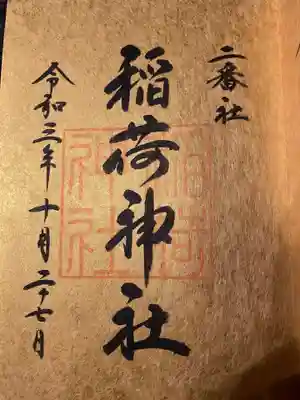 二番社
稲荷神社
令和三年十月二十七日